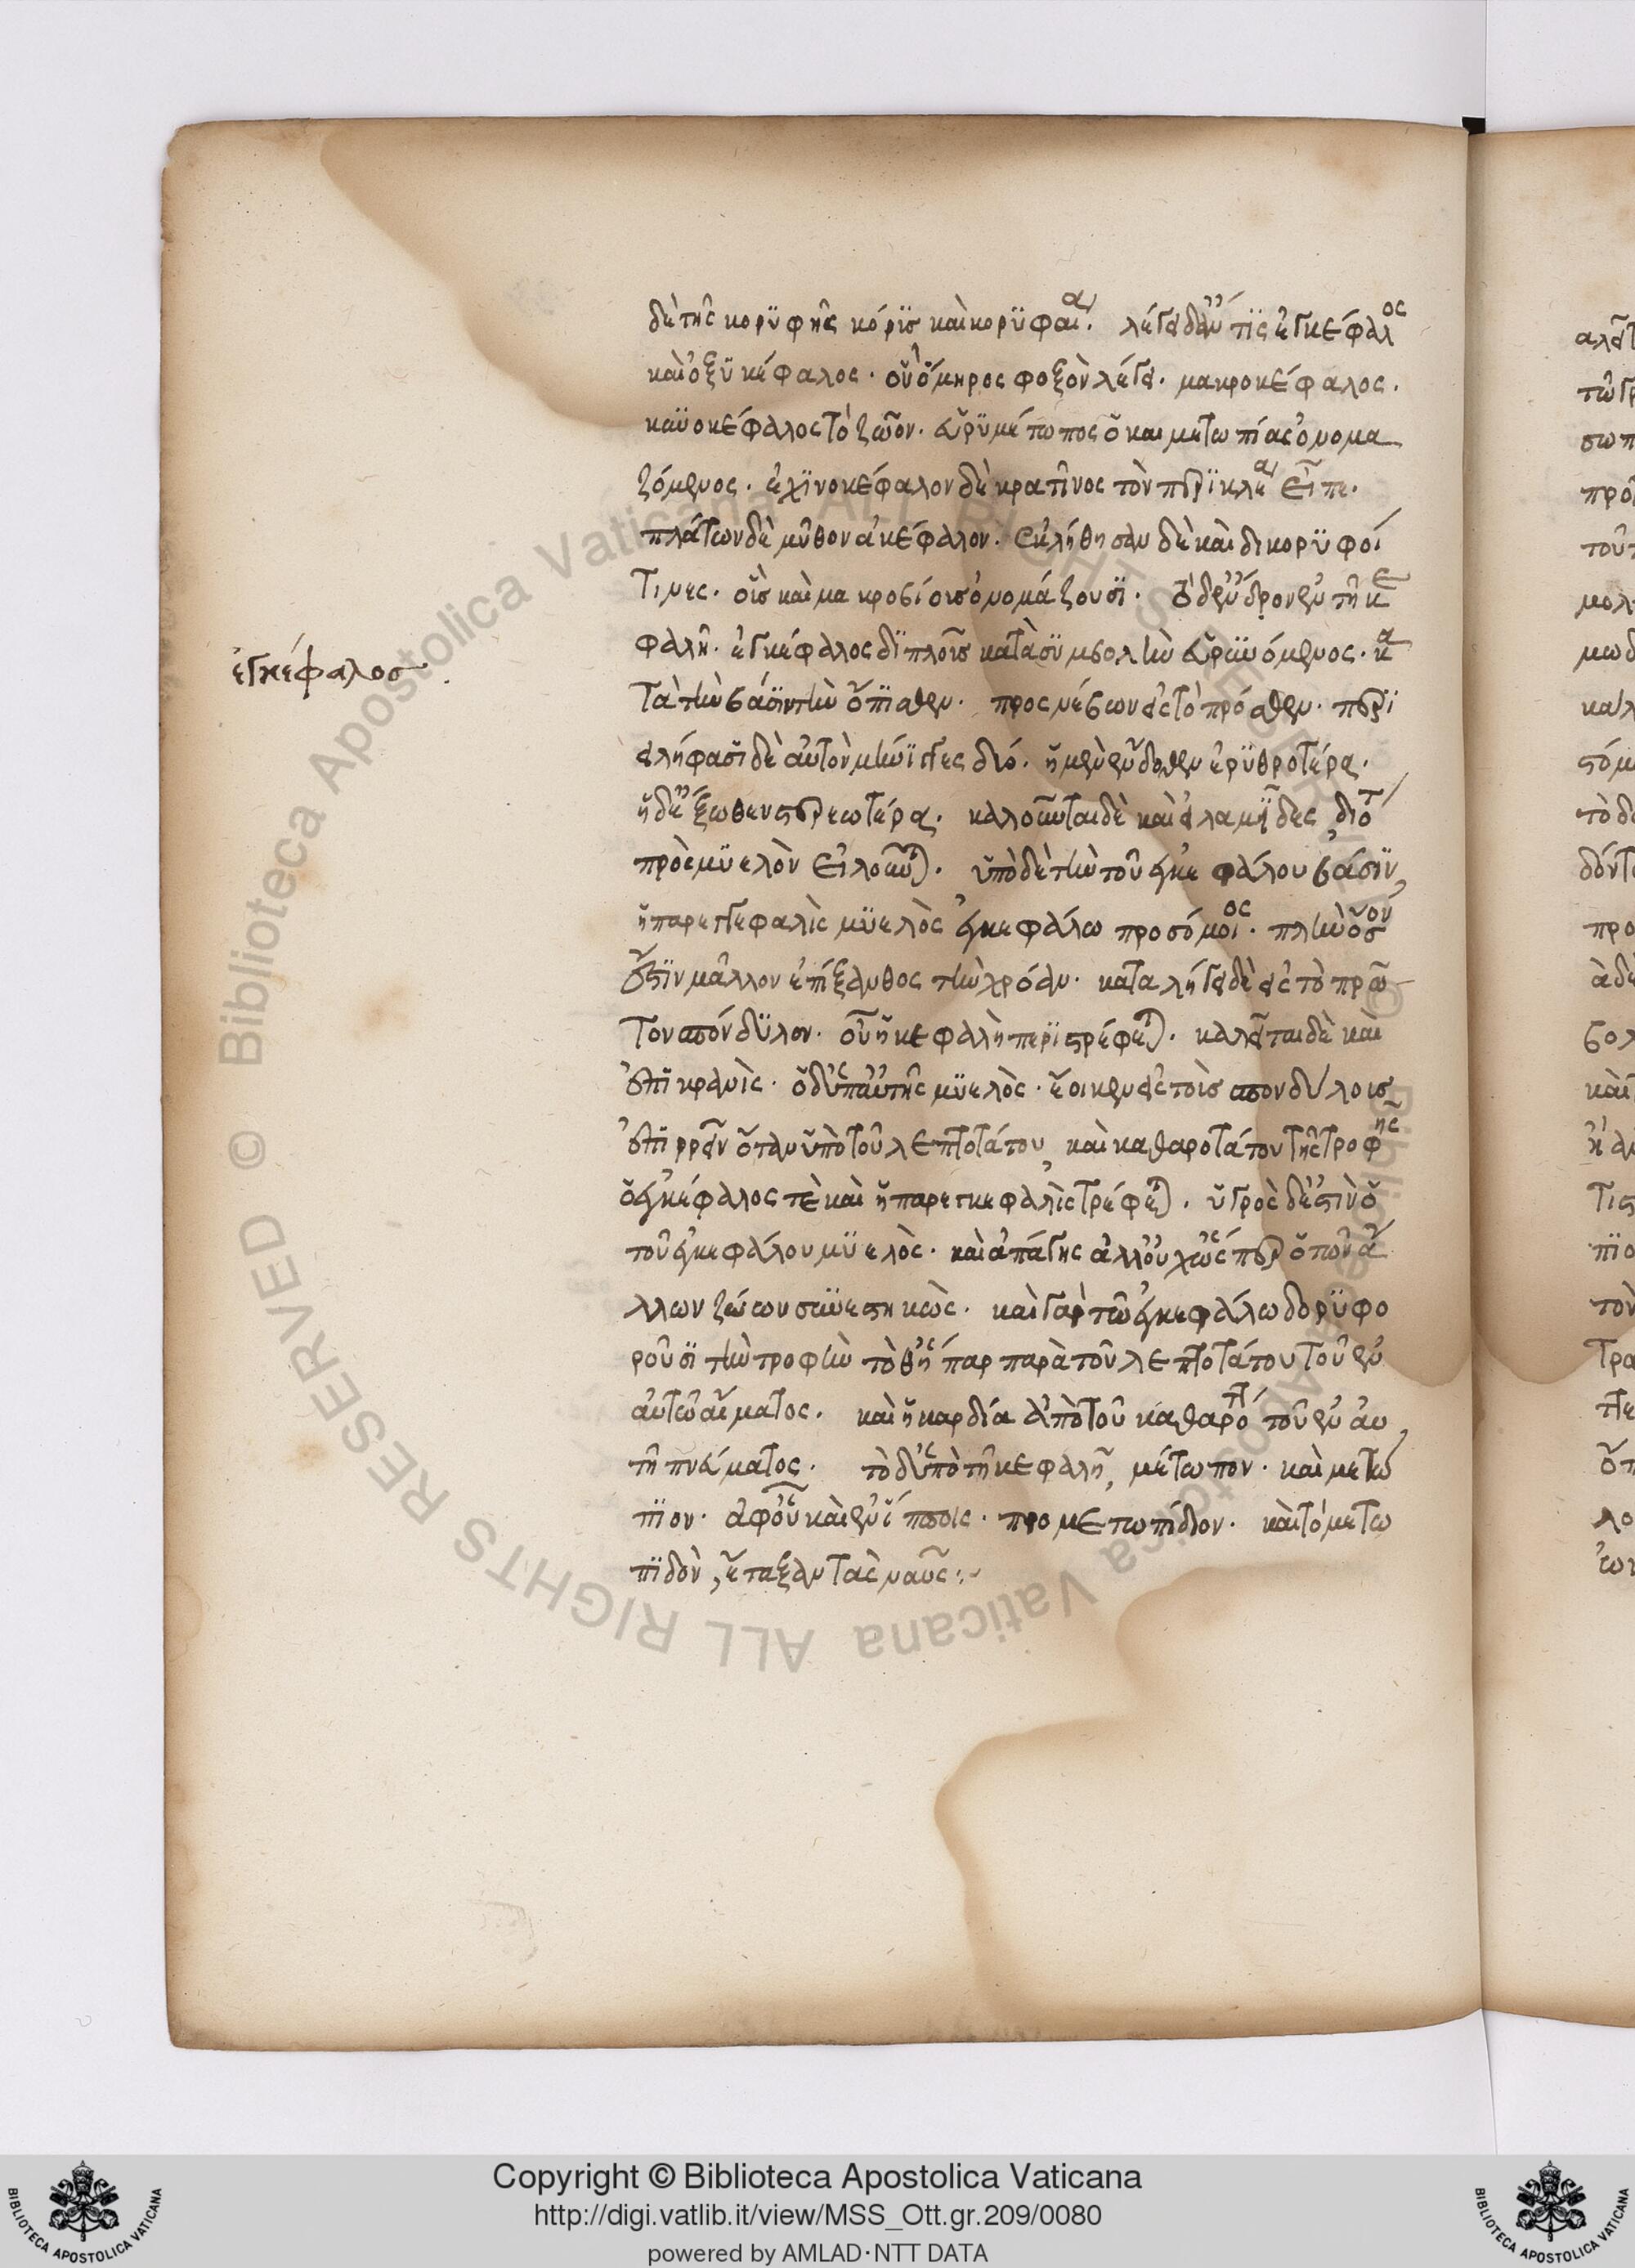 δὲ τῆς κορυφῆς κόρυς καὶ κορυφαία. λέγει δ' ἄν τις ἐγκέφαλος
καὶ ὀξυκέφαλος. ὃν ὅμηρος φοξὸν λέγει. μακροκέφαλος.
κυνοκέφαλος τὸ ζῶον. εὐρυμέτωπος ὁ καὶ μετωπίας ὀνομα
ζόμενος. ἐχινοκέφαλον δὲ κρατῖνος τὸν περικλέα εἶπε.
πλάτων δὲ μῦθον ἀκέφαλον. ἐκλήθησαν δὲ καὶ δικορυφοί
τινες. οἷς καὶ μακροβίοις ὀνομάζουσι. ἔνεδρον ἐν τῆ κε
φαλῆ. ἐγκέφαλος διπλοῖς κατὰ συμβολὴν εὐρυνόμενος. κα
ἐγκέφαλος
τὰ τὴν βάσιν τὴν ὄπισθεν. προσνεύων εἰς τὸ πρόσθεν. περι
ειλήφασι δὲ αὐτὸν μήνιγγες δύο. ἡ μὲν ἔνδοθεν ἐρυθροτέρα.
ἡ δ' ἔξωθεν στερεωτέρα. καλοῦνται δὲ καὶ εἰλαμίδες διότι
πρὸς μυελὸν εἰλοῦνται. ὑπὸ δὲ τὴν τοῦ ἐγκεφάλου βάσιν,
ἡ παρεγκεφαλὶς μυελὸς ἐγκεφάλω προσόμοιος. πλὴν ὅσον
ἐστὶν μᾶλλον ἐπίξανθος τὴν χρόαν. καταλήγει δὲ εἰς τὸ πρῶ
τον σπόνδυλον. οὗ ἡ κεφαλὴ περιστρέφεται. καλεῖται δὲ καὶ
ἐπικρανίς. ὁ δ' ὑπ' αὐτῆς μυελὸς. ἔοικεν εἰς τοῖς σπονδύλοις
ἐπιρρεῖν ὅταν ὑπὸ τοῦ λεπτοτάτου, καὶ καθαροτάτου τῆς τροφῆς
ὁ ἐγκέφαλος τὲ καὶ ἡ παρεγκεφαλὶς τρέφεται. ὑγρὸς δέ ἐστιν ὁ
τοῦ ἐγκεφάλου μυελὸς. καὶ ἀπαγὴς ἀλλ' οὐχ ὥσπερ ὁ τῶν ἄ
λλων ζώων συνεστηκώς. καὶ γὰρ τῶ ἐγκεφάλω δορυφο
ροῦσι τὴν τροφὴν τό θ' ἧπαρ παρὰ τοῦ λεπτοτάτου τοῦ ἐν
αὐτῶ αἵματος. καὶ ἡ καρδία ἀπὸ τοῦ καθαρωτάτου τοῦ ἐν αὐ
τῆ πνεύματος. τὸ δ' ὑπὸ τῆ κεφαλῆ, μέτωπον. καὶ μετώ
πιον. ἀφ' οὗ καὶ ἐν ἵπποις. προμετωπίδιον. καὶ τὸ μετω
πιδὸν, ἔταξαν τὰς ναῦς:~
Copyright © Biblioteca Apostolica Vaticana
http://digi.vatlib.it/view/MSS_Ott.gr.209/0080
powered by AMLAD·NTT DATA